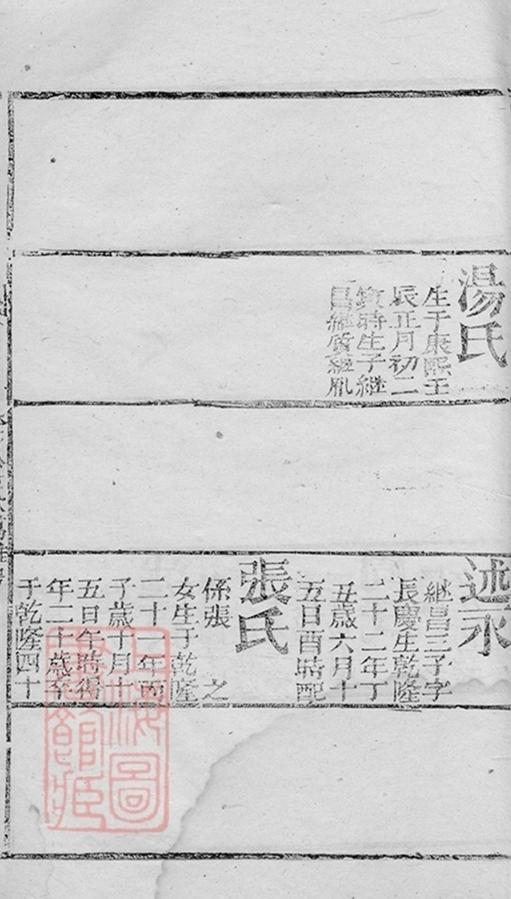 湯氏
生于康熙壬
辰正月初二
時生子繼
昌繼質繼胤
述永
繼昌三子字
長慶生乾隆
二十二年丁
丑歲六月十
五日酉時配
張氏
係張 之
女生于乾隆
二十一年丙
子歲十月十
五日午時得
年二十歲卒
于乾隆四十
上海圖
書館藏